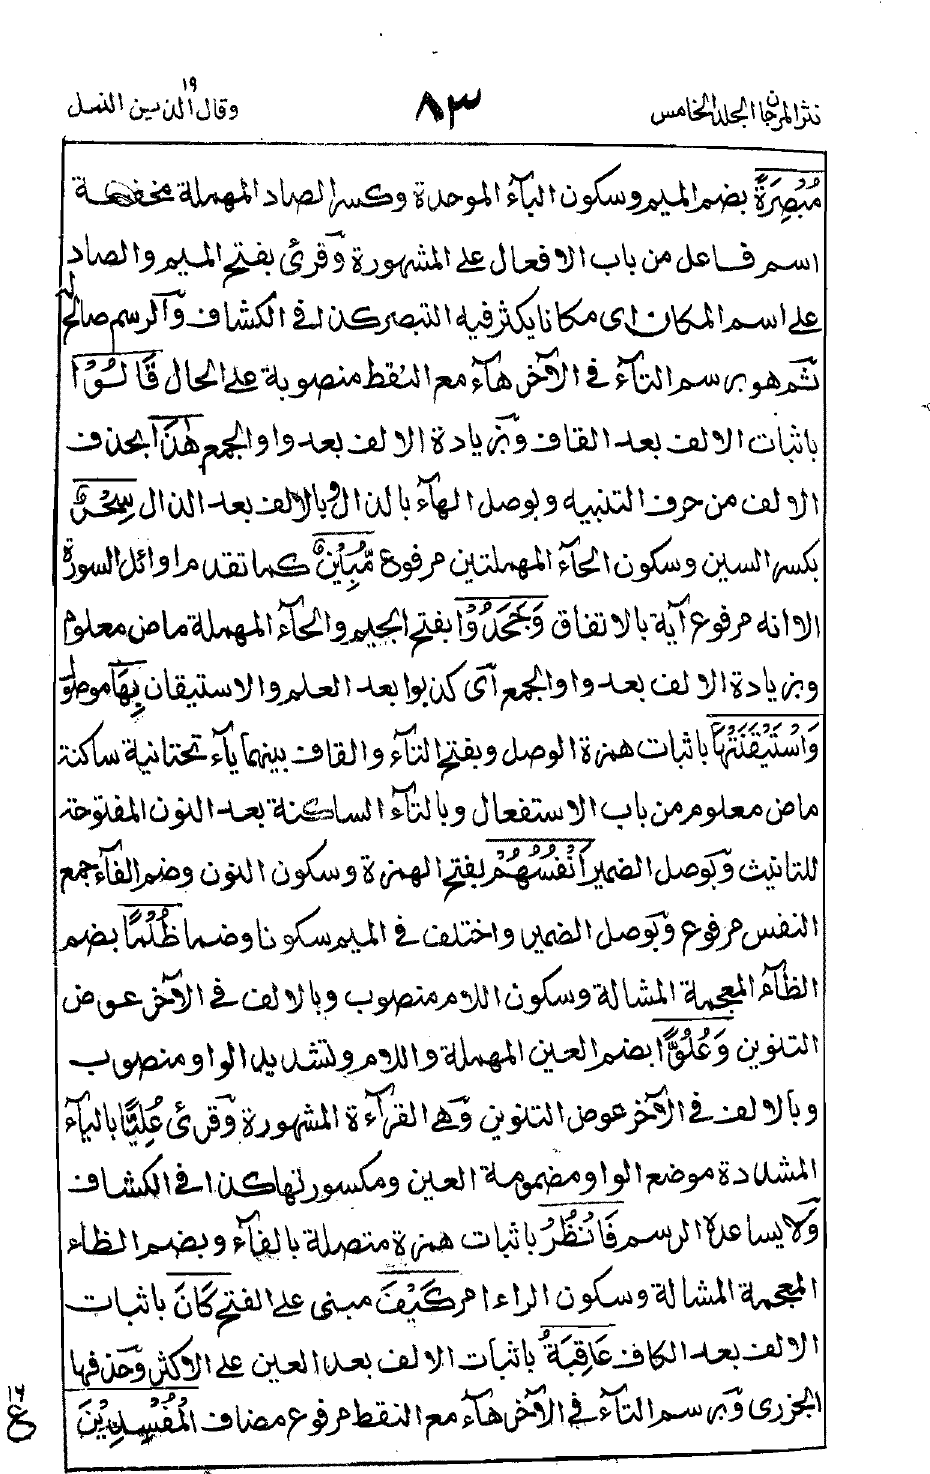 نثر المرجان الجلد الخامس
٨٣
وقال الذين ١٩ النمل
مُبْصِرَةً بضم الميم وسكون البآء الموحدة وكسر الصاد المهملة مخففة
اسم فاعل من باب الافعال على المشهورة وَقرئ بفتح الميم والصاد
على اسم المكان اى مكانا يكثر فيه التبصر كذا فى الكشاف وَالرسم صالح له
ثم هو برسم التآء فى الآخر هآء مع النقط منصوبة على الحال قَالُوْا
باثبات الالف بعد القاف وَبزيادة الالف بعد واو الجمع هٰذَا بحذف
الالف من حرف التنبيه وبوصل الهآء بالذال وبالالف بعد الذال سِحْرٌ
بكسر السين وسكون الحآء المهملتين مرفوع مُّبِيْنٌ كما تقدم اوائل السورة
الا انه مرفوع آية بالاتفاق وَجَحَدُوْا بفتح الجيم والحآء المهملة ماض معلوم
وبزيادة الالف بعد واو الجمع اَى كذبوا بعد العلم والاستيقان بِهَا موصول
وَاسْتَيْقَنَتْهَا باثبات همزة الوصل وبفتح التآء والقاف بينهما يآء تحتانية ساكنة
ماض معلوم من باب الاستفعال وبالتآء الساكنة بعد النون المفتوحة
للتانيث وَبوصل الضمير اَنْفُسُهُمْ بفتح الهمزة وسكون النون وضم الفآء جمع
النفس مرفوع وَبوصل الضمير واختلف فى الميم سكونا وضما ظُلْمًا بضم
الظآء المعجمة المشالة وسكون اللام منصوب وبالالف فى الآخر عوض
التنوين وَعُلُوًّا بضم العين المهملة واللام وتشديد الواو منصوب
وبالالف فى الآخر عوض التنوين وَهى القرآءة المشهورة وَقرئ عُلِيًّا باليآء
المشددة موضع الواو مضمومة العين ومكسورتها كذا فى الكشاف
وَلا يساعده الرسم فَانْظُرْ باثبات همزة متصلة بالفآء وبضم الظاء
المعجمة المشالة وسكون الراء امر كَيْفَ مبنى على الفتح كَانَ باثبات
الالف بعد الكاف عَاقِبَةُ باثبات الالف بعد العين على الاكثر وَحذفها
الجزرى وَبرسم التآء فى الآخر هآء مع النقط مرفوع مضاف الْمُفْسِدِيْنَ
ع ١٦